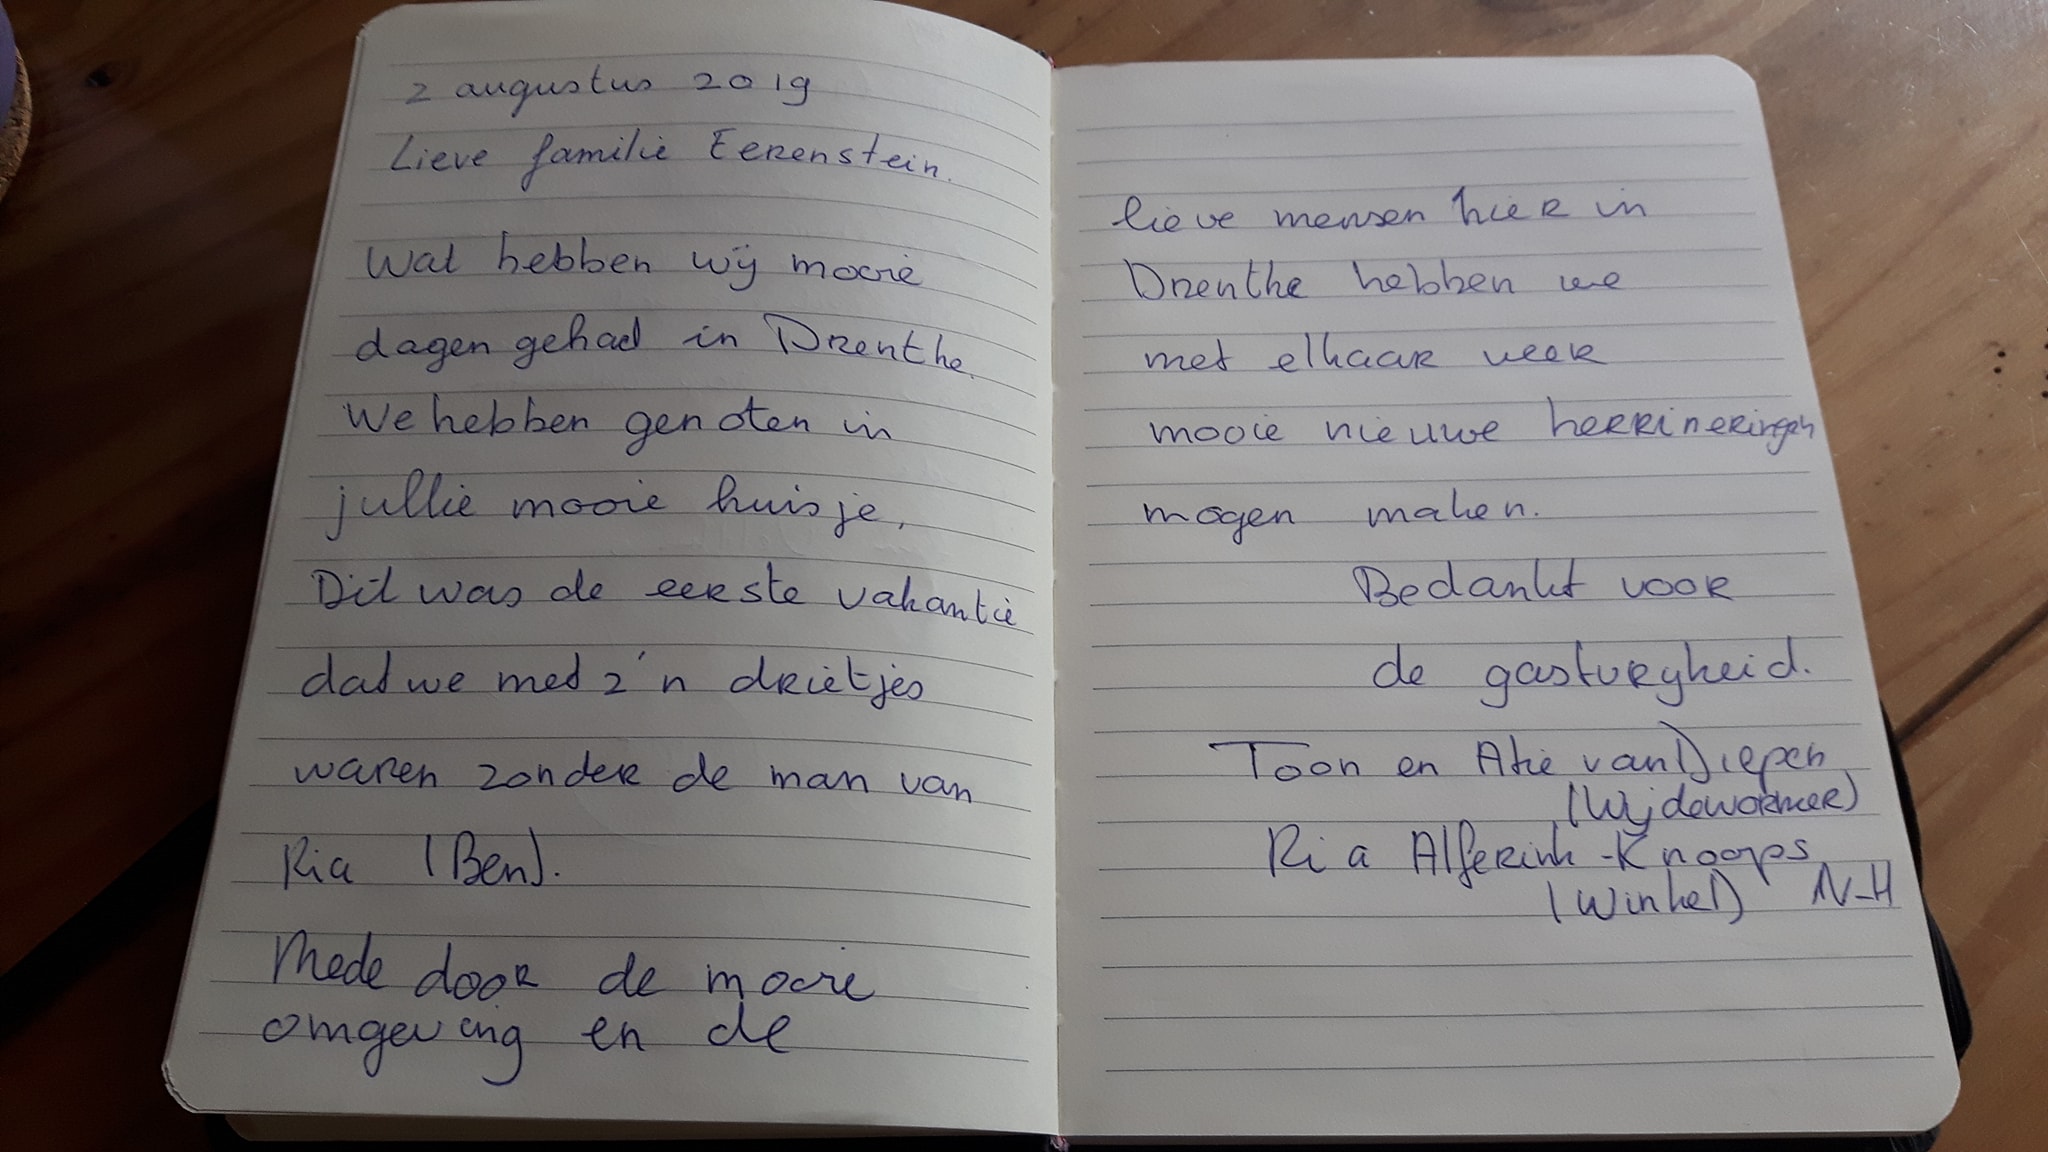 2 augustus 2019
Lieve familie Eerenstein.
Wat hebben wij mooie
dagen gehad in Drenthe.
We hebben genoten in
jullie mooie huisje,
Dit was de eerste vakantie
dat we met z'n drietjes
waren zonder de man van
Ria (Ben).
Mede door de mooie
omgeving en de
lieve mensen hier in
Drenthe hebben we
met elkaar weer
mooie nieuwe herrineringen
mogen maken.
Bedankt voor
de gastvryheid.
Toon en Atie van Diepen
(Wijdewormer)
Ria Alferink-Knoops
(Winkel) N-H